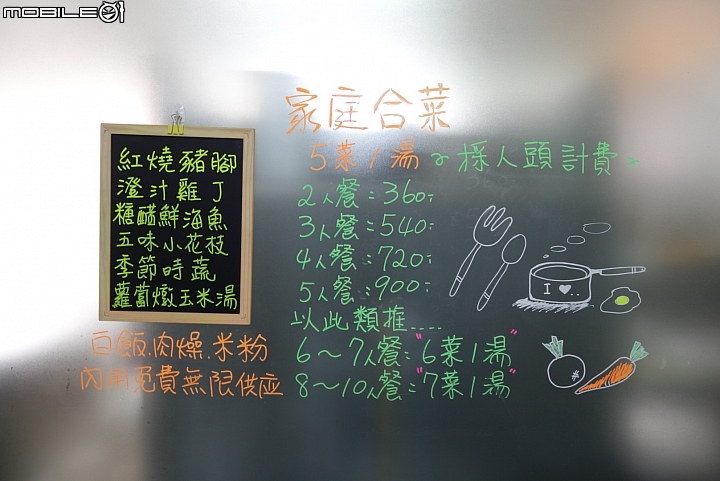 MOBILE01
家庭合菜
5菜1湯~採人頭計費~
紅燒豬腳
澄汁雞丁
糖醋鮮海魚
五味小花枝
季節時蔬
蘿蔔燉玉米湯
2人餐:360.
3人餐:540.
4人餐:720.
5人餐:900.
以此類推....
6~7人餐:"6菜1湯"
8~10人餐:"7菜1湯"
白飯.肉燥.米粉
內用免費無限供应
I ♥..